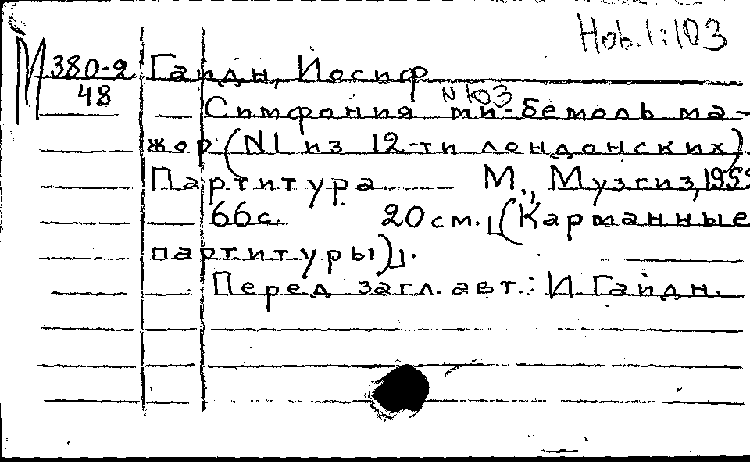 Hob. I:103
М 380-2 Гайдн, Иосиф
48 N 103
Симфония ми-бемоль ма-
жор (N1 из 12-ти лондонских)
Партитура М., Музгиз, 195
66 с. 20 см. (Карманные
партитуры).
Перед загл. авт.: И. Гайдн.